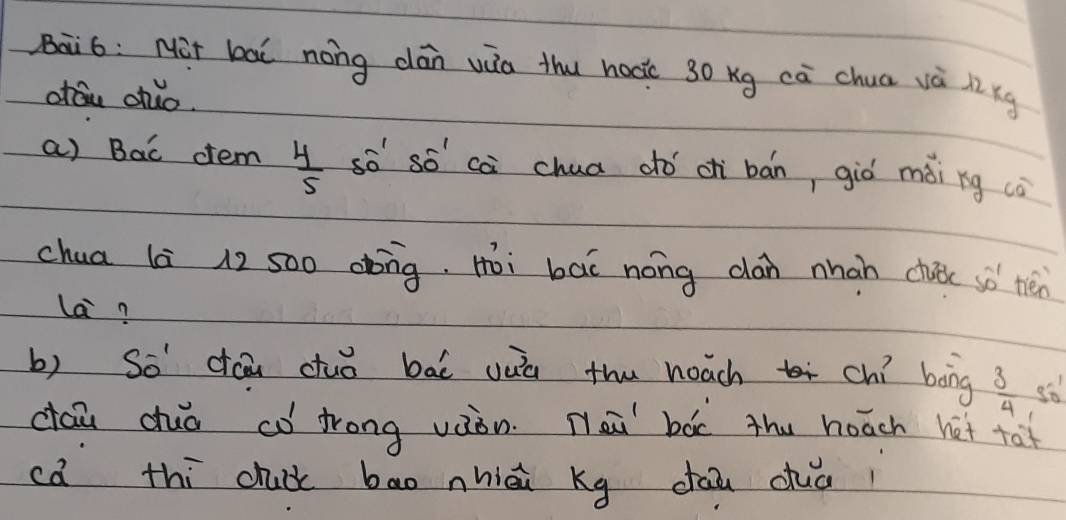 Bài 6: Một bác nông dân vừa thu hoạc 30 kg cà chua và 12 kg
đậu đũa.
a) Bác đem 4/5 số số cà chua đó đi bán, giá mỗi kg cà
chua là 12 500 đồng. Hỏi bác nông dân nhận được số tiền
là ?
b) Số đậu đũa bác vừa thu hoạch chỉ bằng 3/4 số
đậu đũa có trong vườn. Nếu bác thu hoạch hết tất
cả thì được bao nhiêu kg đậu đũa !